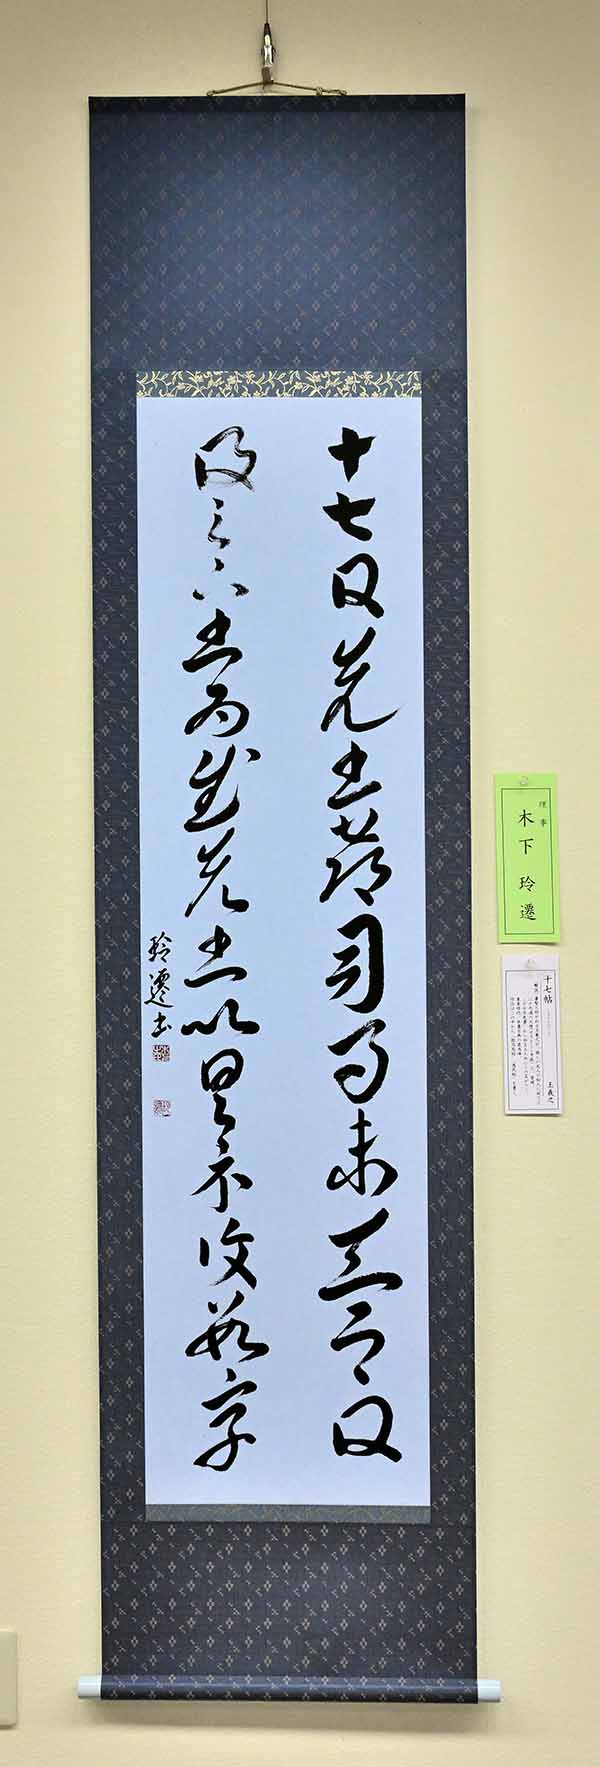 十七日先書郗司馬未去即日
得足下書為慰先書以具示復數字
玲遷書
理事
木下 玲遷
十七帖
王羲之